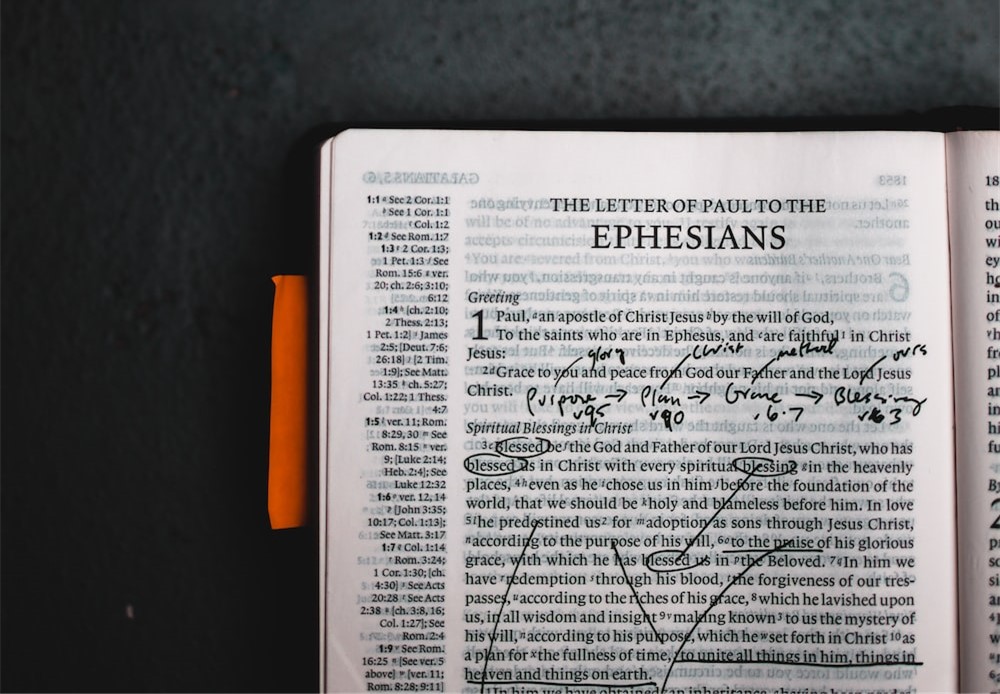 1:1 a See 2 Cor. 1:1
b See 1 Cor. 1:1
c Col. 1:2
1:2 d See Rom. 1:7
1:3 e 2 Cor. 1:3;
1 Pet. 1:3 f See
Rom. 15:6 g ver.
20; ch. 2:6; 3:10;
6:12
1:4 h [ch. 2:10;
2 Thess. 2:13;
1 Pet. 1:2] i James
2:5; [Deut. 7:6;
26:18] j [2 Tim.
1:9]; See Matt.
13:35 k ch. 5:27;
Col. 1:22; 1 Thess.
4:7
1:5 l ver. 11; Rom.
8:29, 30 m See
Rom. 8:15 n ver.
9; [Luke 2:14;
Heb. 2:4]; See
Luke 12:32
1:6 o ver. 12, 14
p [John 3:35;
10:17; Col. 1:13];
See Matt. 3:17
1:7 q Col. 1:14
r Rom. 3:24;
1 Cor. 1:30; [ch.
4:30] s See Acts
20:28 t See Acts
2:38 u [ch. 3:8, 16;
Col. 1:27]; See
Rom. 2:4
1:9 v See Rom.
16:25 n [See ver. 5
above] w [ver. 11;
Rom. 8:28; 9:11]
THE LETTER OF PAUL TO THE
EPHESIANS
Greeting
1 Paul, a an apostle of Christ Jesus b by the will of God,
To the saints who are in Ephesus, and c are faithful 1 in Christ
Jesus:
glory Christ method ours
2 d Grace to you and peace from God our Father and the Lord Jesus
Christ.
Purpose → Plan → Grace → Blessing
Spiritual Blessings in Christ
3 e Blessed be f the God and Father of our Lord Jesus Christ, who has
blessed us in Christ with every spiritual blessing g in the heavenly
places, 4 h even as he i chose us in him j before the foundation of the
world, that we should be k holy and blameless before him. In love
5 l he predestined us 2 for m adoption as sons through Jesus Christ,
n according to the purpose of his will, 6 o to the praise of his glorious
grace, with which he has blessed us in p the Beloved. 7 q In him we
have r redemption s through his blood, t the forgiveness of our tres-
passes, u according to the riches of his grace, 8 which he lavished upon
us, in all wisdom and insight 9 v making known 3 to us the mystery of
his will, n according to his purpose, which he w set forth in Christ 10 as
a plan for x the fullness of time, y to unite all things in him, things in
heaven and things on earth.